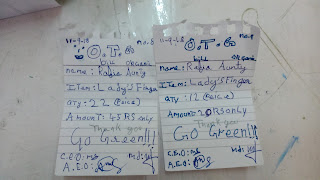 11-9-18 no.8
O.T.G
bill organic
name: Kavia Aunty
Item: Lady's Finger
qty: 22 (Peice)
Amount: 45 RS only
Thank you
Go Green!!!
C.E.O: ms
A.E.O:
11-9-18
O.T.G
bill organic
name: Kavia Aunty
Item: Lady's Finger
qty: 12 (Peice)
Amount: 20RS only
Thank you
Go Green!!
C.E.O: ms
A.E.O: